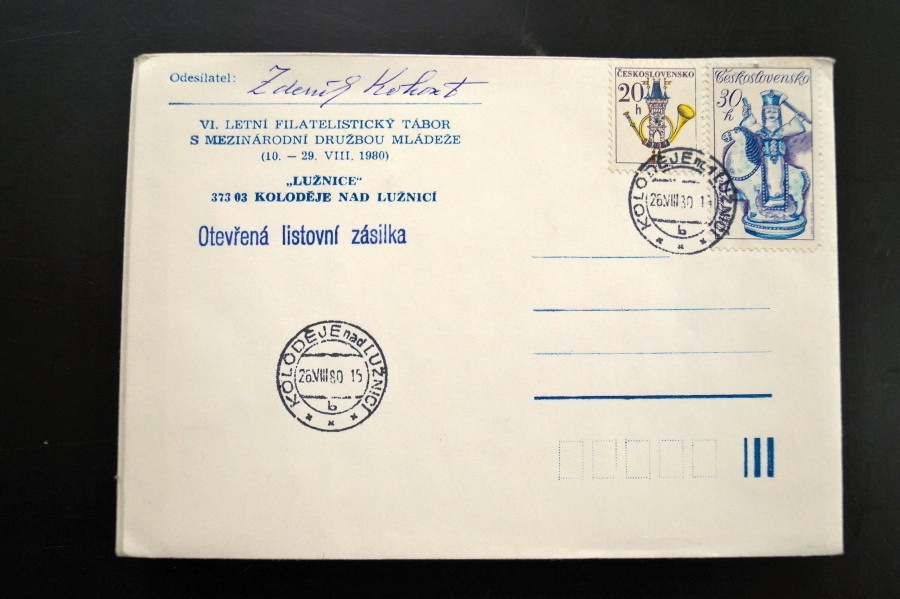 Odesílatel: Zdeněk Kohout
VI. LETNÍ FILATELISTICKÝ TÁBOR
S MEZINÁRODNÍ DRUŽBOU MLÁDEŽE
(10. – 29. VIII. 1980)
„LUŽNICE“
373 03 KOLODĚJE NAD LUŽNICÍ
Otevřená listovní zásilka
ČESKOSLOVENSKO
20
h
Československo
30
h
KOLODĚJE nad LUŽNICÍ
26.VIII 80 15
b
KOLODĚJE nad LUŽNICÍ
26.VIII 80 15
b